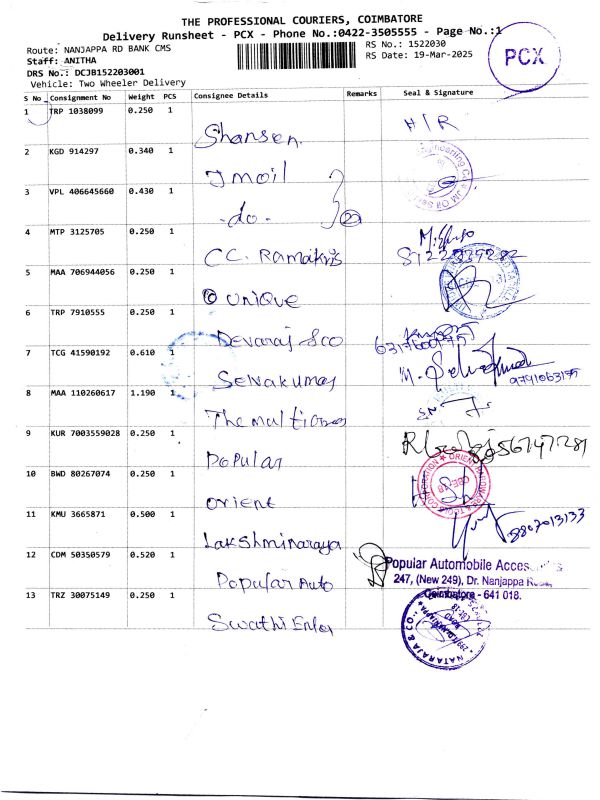 THE PROFESSIONAL COURIERS, COIMBATORE
Delivery Runsheet - PCX - Phone No.:0422-3505555 - Page No.:1
Route: NANJAPPA RD BANK CMS
RS No.: 1522030
Staff: ANITHA
RS Date: 19-Mar-2025
PCX
DRS No.: DCJB152203001
Vehicle: Two Wheeler Delivery
S No Consignment No Weight PCS Consignee Details Remarks Seal & Signature
1 TRP 1038099 0.250 1
Shansen
H/R
2 KGD 914297 0.340 1
J moil
3 VPL 406645660 0.430 1
-do-
4 MTP 3125705 0.250 1
CC. Ramakris
5 MAA 706944056 0.250 1
Unique
6 TRP 7910555 0.250 1
Devaraj &co
7 TCG 41590192 0.610 1
Selvakumar
9791063175
8 MAA 110260617 1.190 1
The multi
9 KUR 7003559028 0.250 1
Popular
10 BWD 80267074 0.250 1
Orient
11 KMU 3665871 0.500 1
Lakshminaraya
8807013133
12 CDM 50350579 0.520 1
Popular Auto
Popular Automobile Acces
247, (New 249), Dr. Nanjappa Road,
Coimbatore - 641 018.
13 TRZ 30075149 0.250 1
Swathi Enter
NATARAJA & CO.,